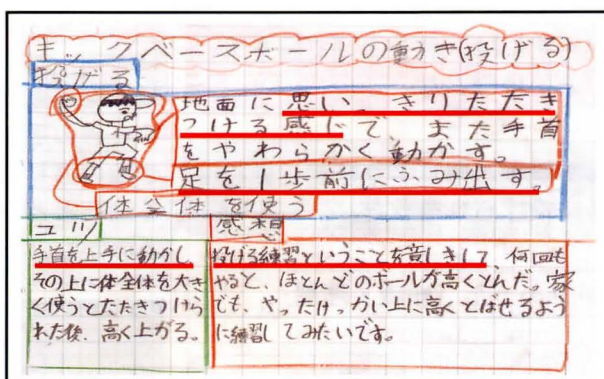 キックベースボールの動き(投げる)
投げる
地面に思い、きりたたき
つける感じで、また手首
をやわらかく動かす。
足を1歩前にふみ出す。
体全体を使う
コツ
手首を上手に動かし、
その上に体全体を大き
く使うとたたきつけら
れた後、高く上がる。
感想
投げる練習ということを意しきして、何回も
やると、ほとんどのボールが高くとんだ。家
でも、やったけっかい上に高くとばせるよう
に練習してみたいです。